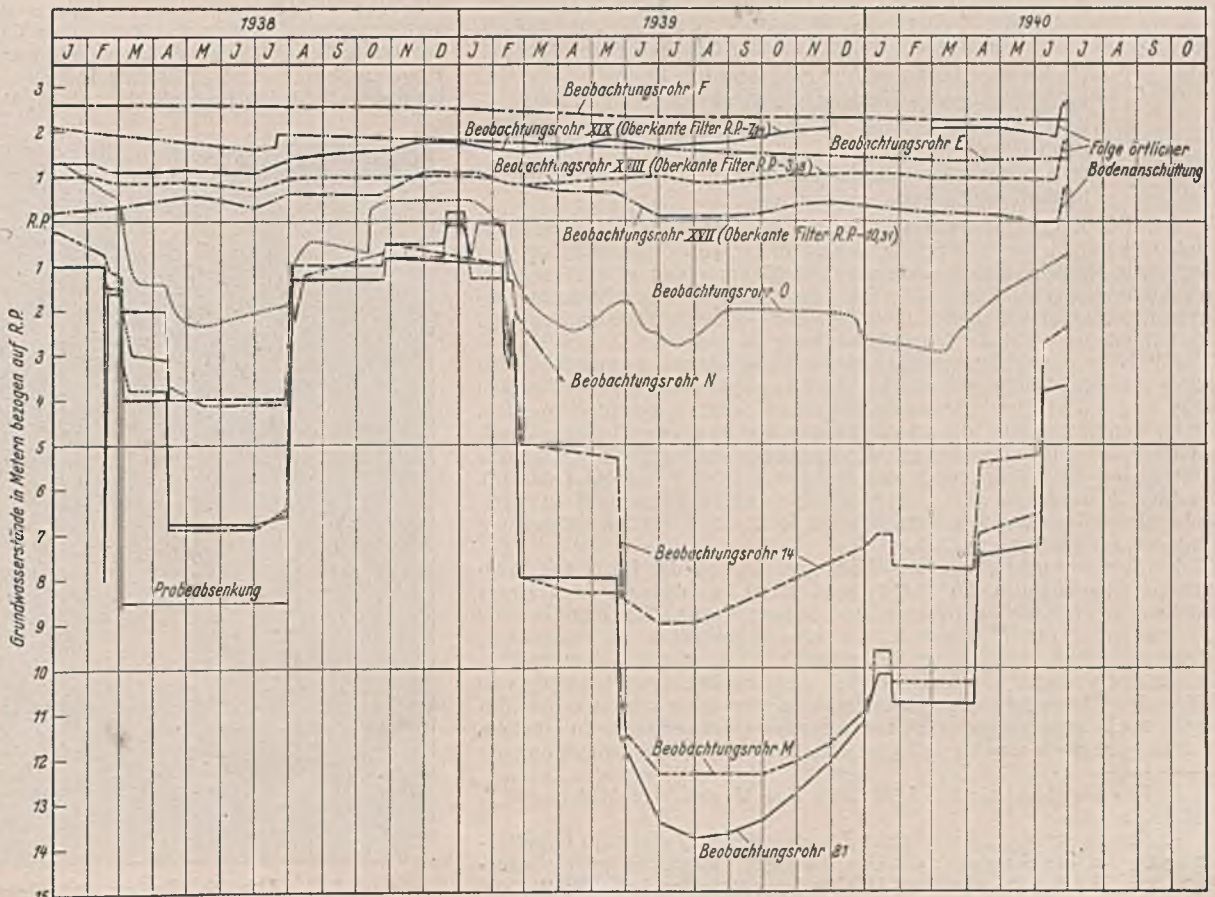 1938 1939 1940
J F M A M J J A S O N D J F M A M J J A S O N D J F M A M J J A S O
3
2
1
R.P.
1
2
3
4
5
6
7
8
9
10
11
12
13
14
15
Grundwasserstände in Metern bezogen auf R.P.
Beobachtungsrohr F
Beobachtungsrohr XIX (Oberkante Filter R.P.-7,11)
Beobachtungsrohr E
Beobachtungsrohr XVIII (Oberkante Filter R.P.-3,28)
Folge örtlicher
Bodenanschüttung
Beobachtungsrohr XVII (Oberkante Filter R.P.-10,31)
Beobachtungsrohr O
Beobachtungsrohr N
Beobachtungsrohr 14
Probeabsenkung
Beobachtungsrohr M
Beobachtungsrohr 81